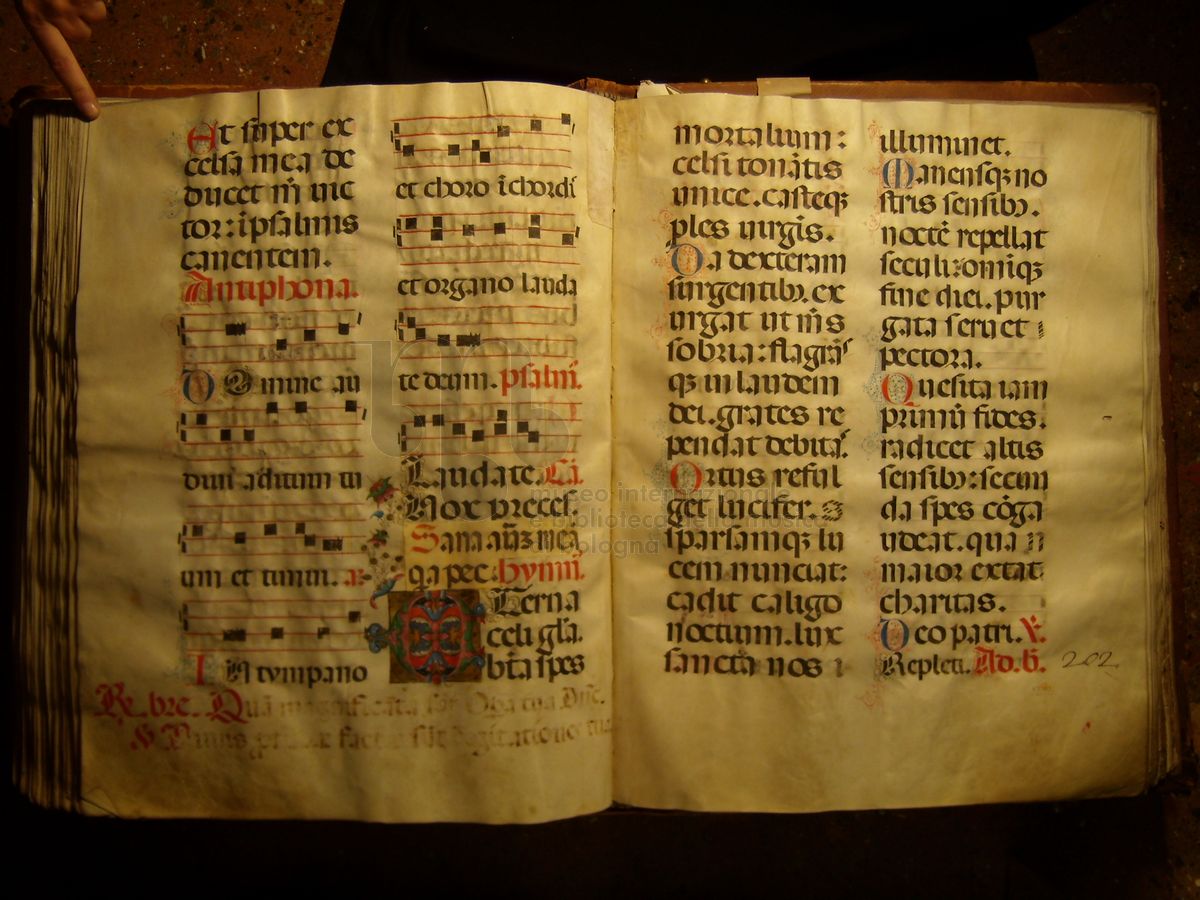 Et super ex
celsa mea de
ducet m̄ vic
tor: ī psalmis
canentem.
Antiphona.
Domine au
divi auditum tu
um et timui. a:
In tympano
et choro ī chordi
et organo lauda
te deum. psalm̄.
Laudate. Ca.
Nox preces.
hymn̄.
Eterna
celi gl̄a.
bt̄a spes
R. bre. Quā magnificata sūt Opa tua Dn̄e.
mortalium:
celsi tonātis
unice. casteqȝ
ples virgīs.
Da dexteram
surgentibȝ. ex
urgat ut m̄s
sobria: flagrās
qȝ in laudem
dei. grates re
pendat debitas.
Ortus reful
get lucifer.
sparsamqȝ lu
cem nunciat:
cadit caligo
noctium. lux
sancta nos i
illuminet.
Manensqȝ no
stris sensibȝ.
noctē repellat
seculi: omīqȝ
fine diei. pur
gata servet
pectora.
Quesita iam
primū fides.
radicet altis
sensibȝ: secun
da spes cōga
udeat. qua
maior extat
charitas.
Deo patri. V.
Repleti. Ad. b.
202.
museo internazionale
e biblioteca della musica
bologna